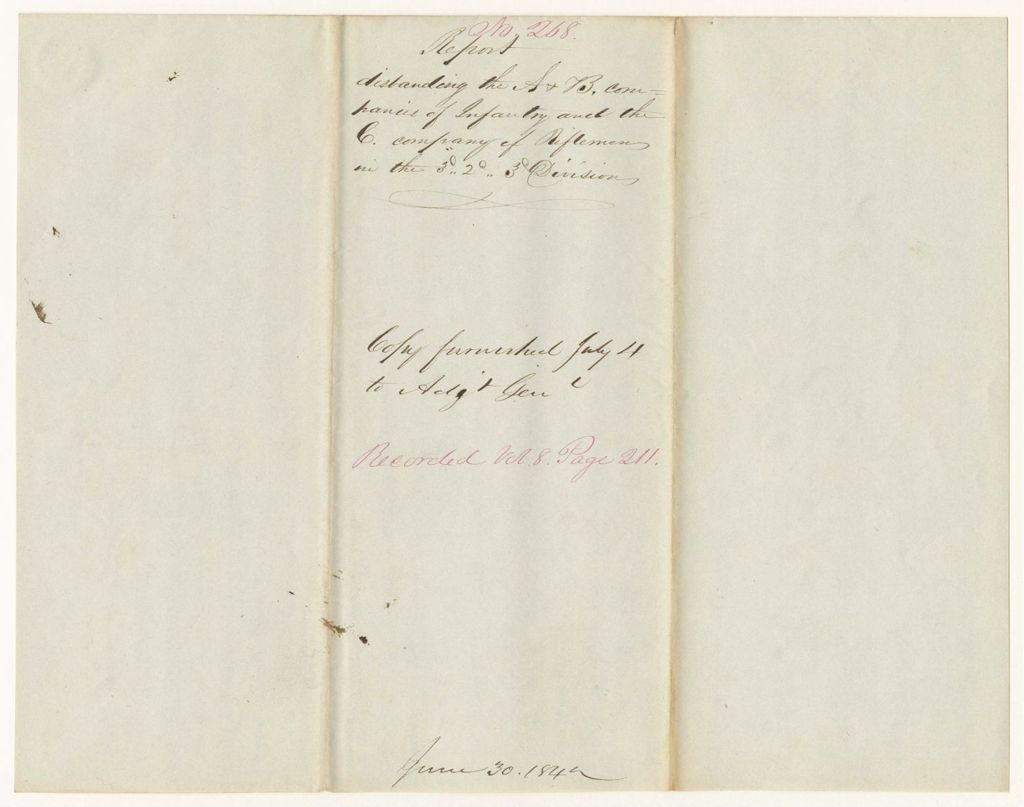 No. 268.
Report
disbanding the A & B. com=
panies of Infantry and the
C. company of Riflemen
in the 3d.. 2d.. 3d Division
Copy furnished July 4
to Adjt Genl
Recorded Vol. 8. Page 211.
June 30. 1842